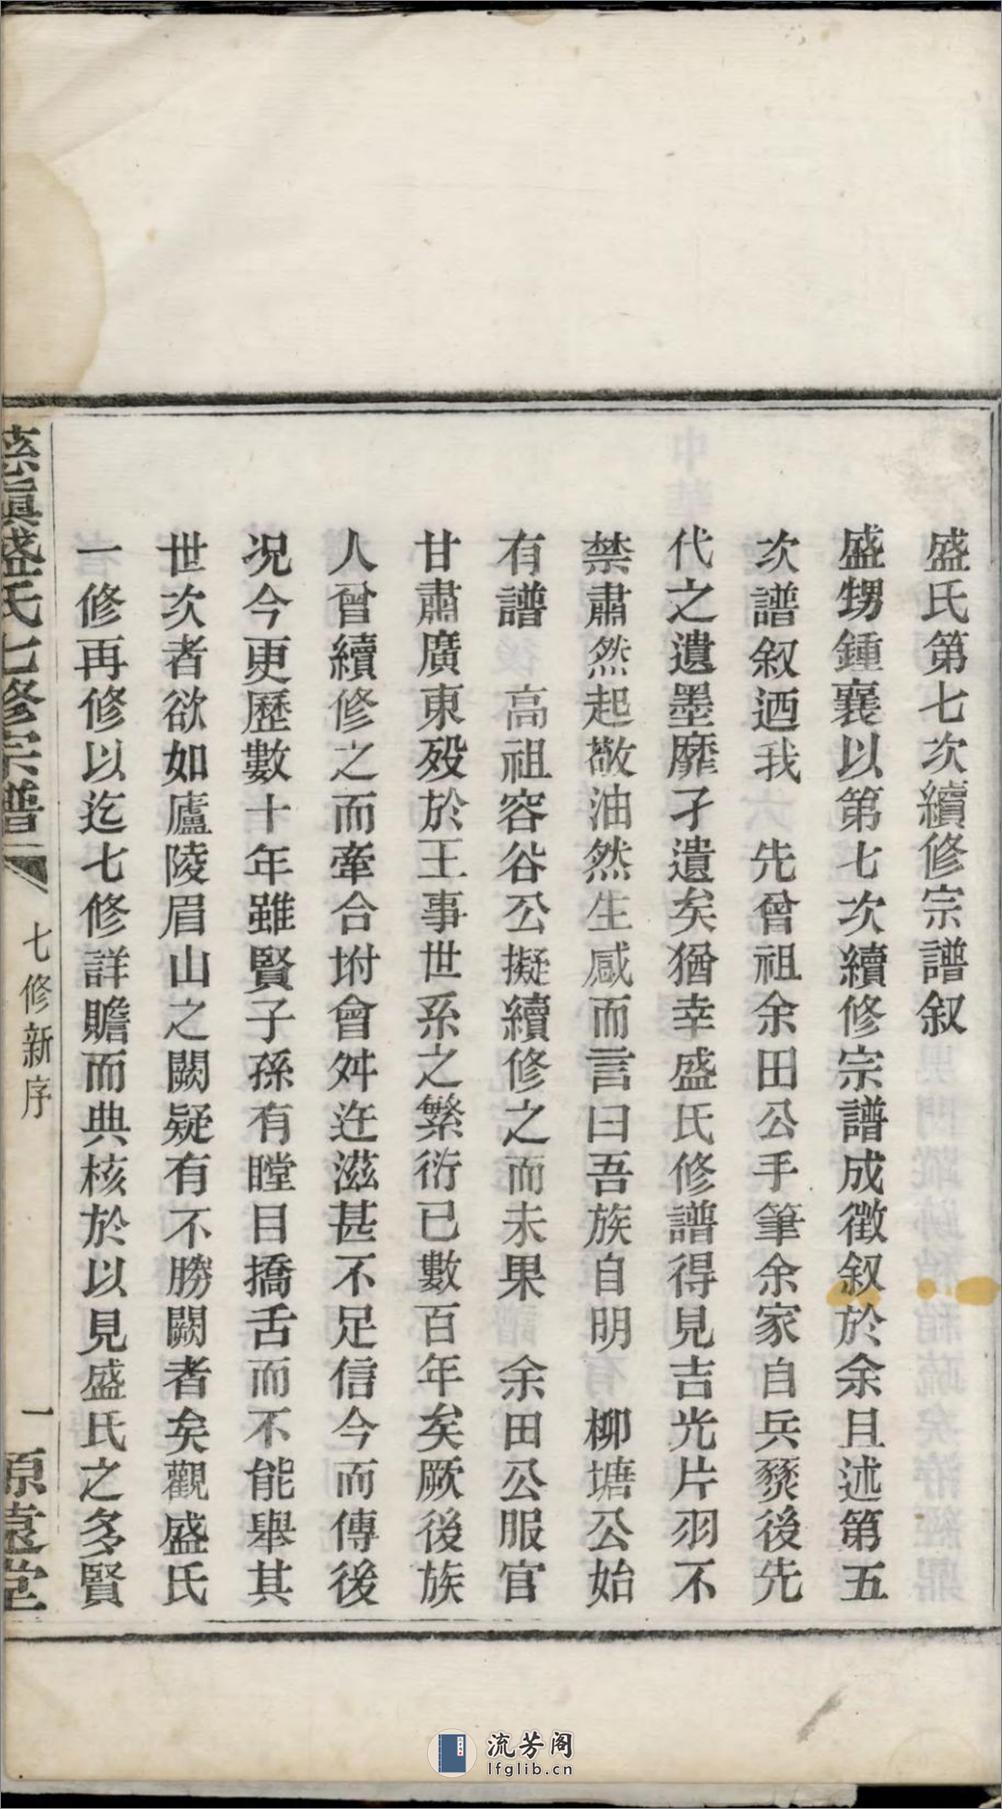 盛氏第七次續修宗譜叙
盛甥鍾襄以第七次續修宗譜成徵叙於余且述第五
次譜叙迺我　先曾祖余田公手筆余家自兵燹後先
代之遺墨靡孑遺矣猶幸盛氏修譜得見吉光片羽不
禁肅然起敬油然生感而言曰吾族自明　柳塘公始
有譜　高祖容谷公擬續修之而未果　余田公服官
甘肅廣東歿於王事世系之繁衍已數百年矣厥後族
人曾續修之而牽合坿會舛迕滋甚不足信今而傳後
况今更歷數十年雖賢子孫有瞠目撟舌而不能舉其
世次者欲如廬陵眉山之闕疑有不勝闕者矣觀盛氏
一修再修以迄七修詳贍而典核於以見盛氏之多賢
慈谿盛氏七修宗譜
七修新序
一
源遠堂
流芳阁
lfglib.cn